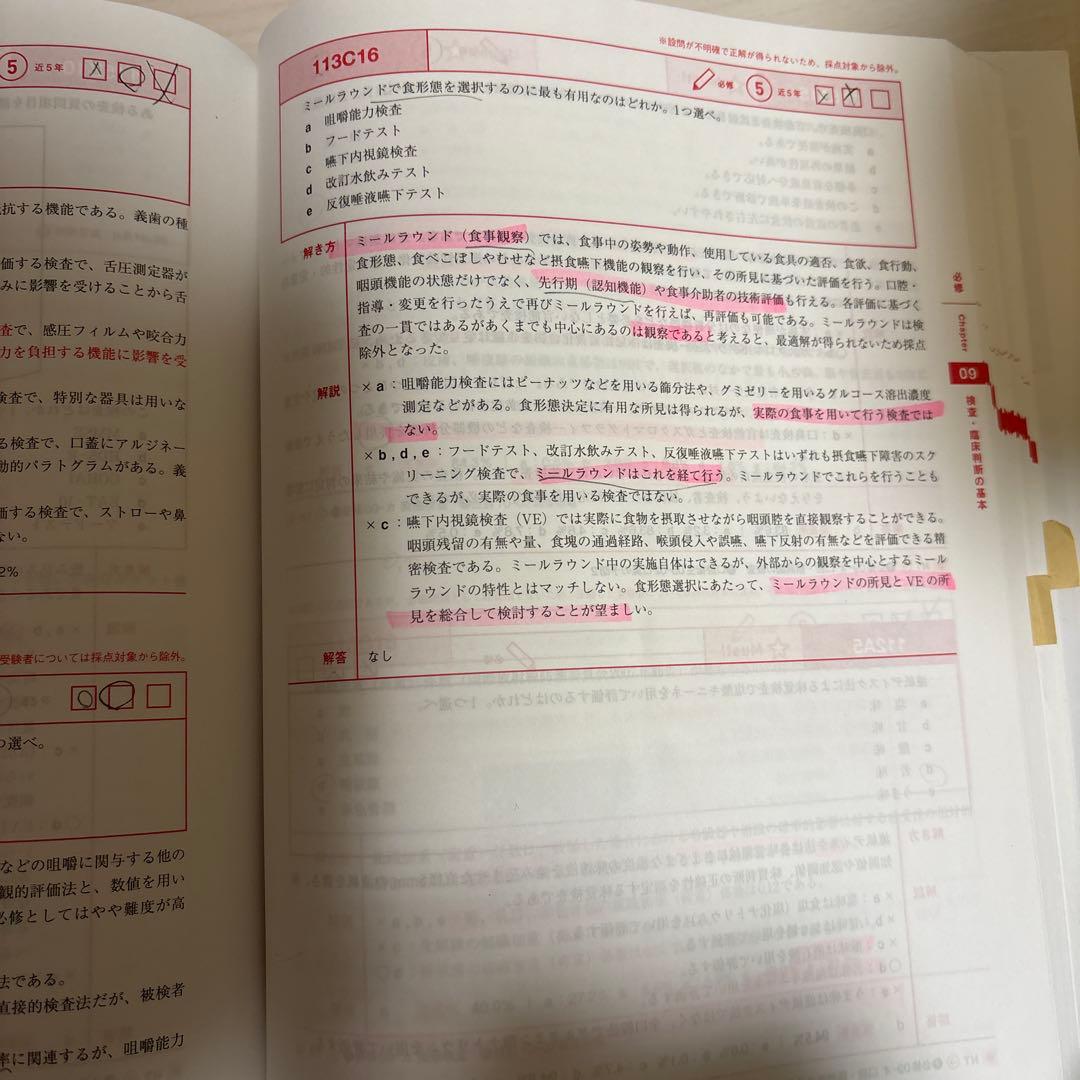 5
近5年
抗する機能である。義歯の種
価する検査で、舌圧測定器が
みに影響を受けることから舌
査で、感圧フィルムや咬合力
力を負担する機能に影響を受
検査で、特別な器具は用いな
る検査で、口蓋にアルジネー
動的パラトグラムがある。義
価する検査で、ストローや鼻
ない。
2%
受験者については採点対象から除外。
つ選べ。
などの咀嚼に関与する他の
観的評価法と、数値を用い
必修としてはやや難度が高
法である。
直接的検査法だが、被検者
率に関連するが、咀嚼能力
※設問が不明確で正解が得られないため、採点対象から除外。
113C16
必修 5 近5年
ミールラウンドで食形態を選択するのに最も有用なのはどれか。1つ選べ。
a 咀嚼能力検査
b フードテスト
c 嚥下内視鏡検査
d 改訂水飲みテスト
e 反復唾液嚥下テスト
解き方 ミールラウンド（食事観察）では、食事中の姿勢や動作、使用している食具の適否、食欲、食行動、
食形態、食べこぼしやむせなど摂食嚥下機能の観察を行い、その所見に基づいた評価を行う。口腔・
咽頭機能の状態だけでなく、先行期（認知機能）や食事介助者の技術評価も行える。各評価に基づく
指導・変更を行ったうえで再びミールラウンドを行えば、再評価も可能である。ミールラウンドは検
査の一貫ではあるがあくまでも中心にあるのは観察であると考えると、最適解が得られないため採点
除外となった。
解説 ×a：咀嚼能力検査にはピーナッツなどを用いる篩分法や、グミゼリーを用いるグルコース溶出濃度
測定などがある。食形態決定に有用な所見は得られるが、実際の食事を用いて行う検査では
ない。
×b,d,e：フードテスト、改訂水飲みテスト、反復唾液嚥下テストはいずれも摂食嚥下障害のスク
リーニング検査で、ミールラウンドはこれを経て行う。ミールラウンドでこれらを行うことも
できるが、実際の食事を用いる検査ではない。
×c：嚥下内視鏡検査（VE）では実際に食物を摂取させながら咽頭腔を直接観察することができる。
咽頭残留の有無や量、食塊の通過経路、喉頭侵入や誤嚥、嚥下反射の有無などを評価できる精
密検査である。ミールラウンド中の実施自体はできるが、外部からの観察を中心とするミール
ラウンドの特性とはマッチしない。食形態選択にあたって、ミールラウンドの所見とVEの所
見を総合して検討することが望ましい。
解答 なし
必修
Chapter
09
検査・臨床判断の基本